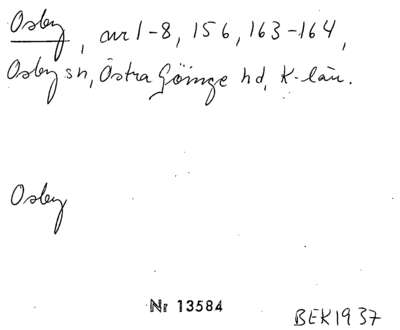 Osby, avr 1-8, 156, 163-164,
Osby sn, Östra Göinge hd, K-län.
Osby
Nr 13584
BEK1937